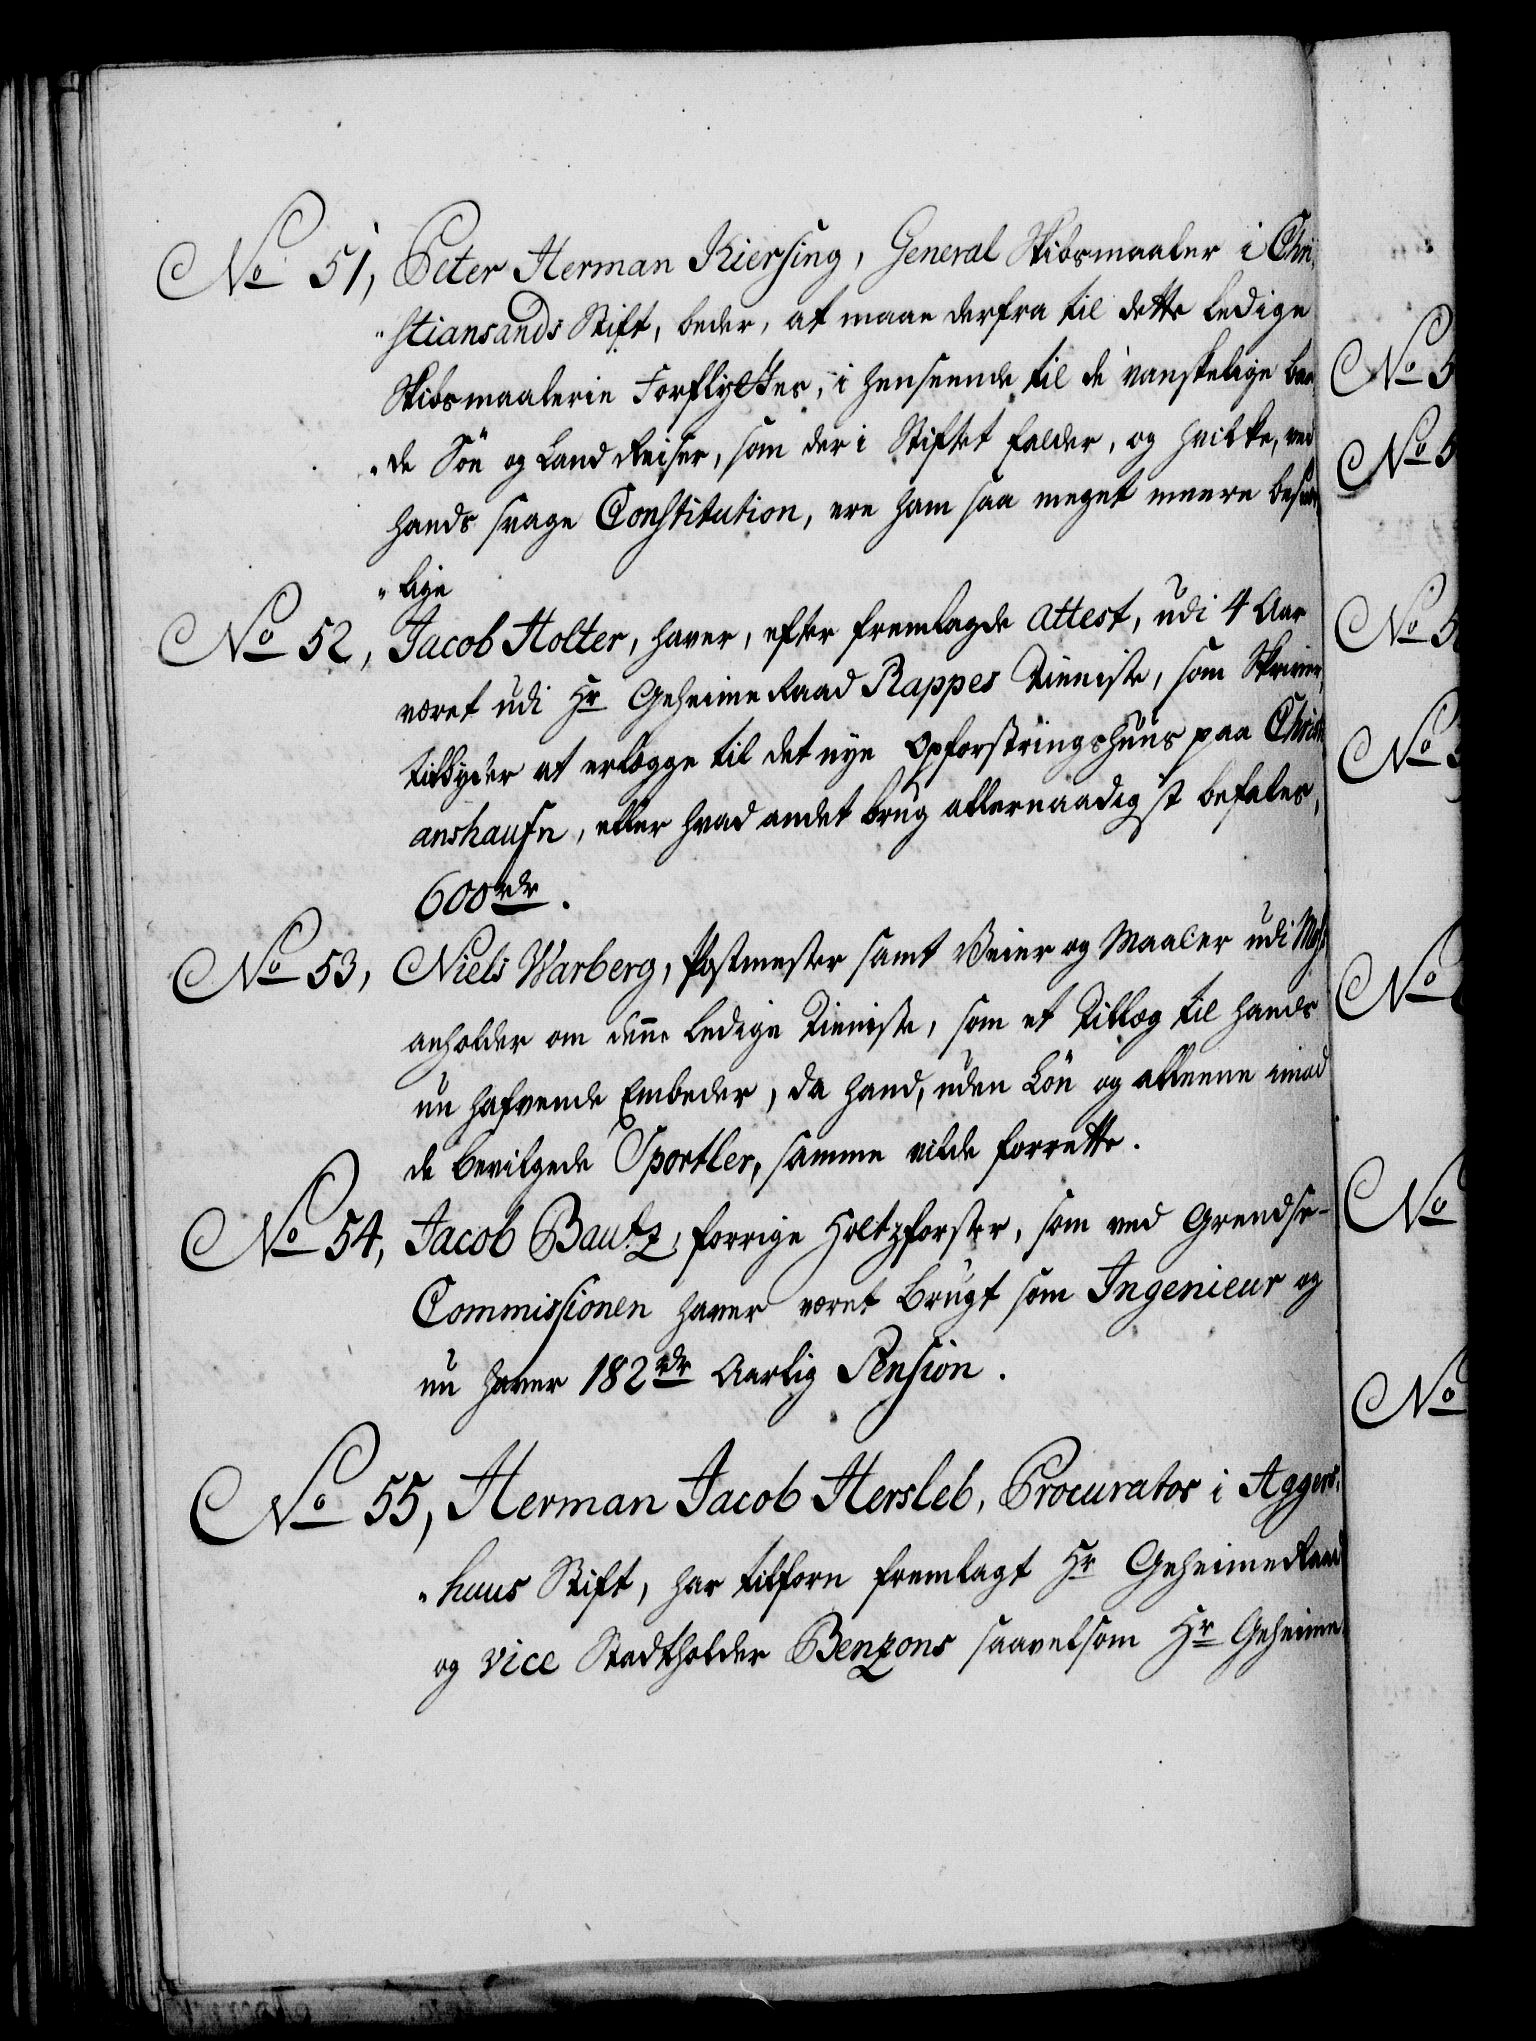 No 51, Peter Herman Kiersing, General Skibsmaaler i Chri„
„stiansands Stift, beder, at maae derfra til dette ledige
Skibsmaalerie Forflyttes, i henseende til de vanskelige baa„
„de Söe og Land Reiser, som der i Stiftet falder, og hvilke, ved
hands svage Constitution, ere ham saa meget meere besvær„
„lige
No 52, Jacob Holter, haver, efter fremlagde Attest, udi 4 Aar
været udi Hr Geheime Raad Rappes Tieniste, som Skriver,
tilbyder at erlegge til det nye Opfostringshuus paa Christi„
anshaufn, eller hvad andet brug allernaadigst befales,
600rdr.
No 53, Niels Warberg, Postmester samt Veier og Maaler udi
anholder om denne ledige Tieniste, som et Tillæg til hands
nu hafvende Embeder, da hand, uden Lön og alleene imod
de bevilgede Sportler, samme vilde forrette.
No 54, Jacob Bautz, forrige Holtzforster, som ved Grendse-
Commissionen haver været brugt som Ingenieur og
nu haver 182rdr Aarlig Pension.
No 55, Herman Jacob Hersleb, Procurator i Aggers„
„huus Stift, har tilforn fremlagt Hr Geheime Raad
og Vice Stadtholder Benzons saavelsom Hr Geheime
No 5
No 5
No 5
No 5
No
No
No